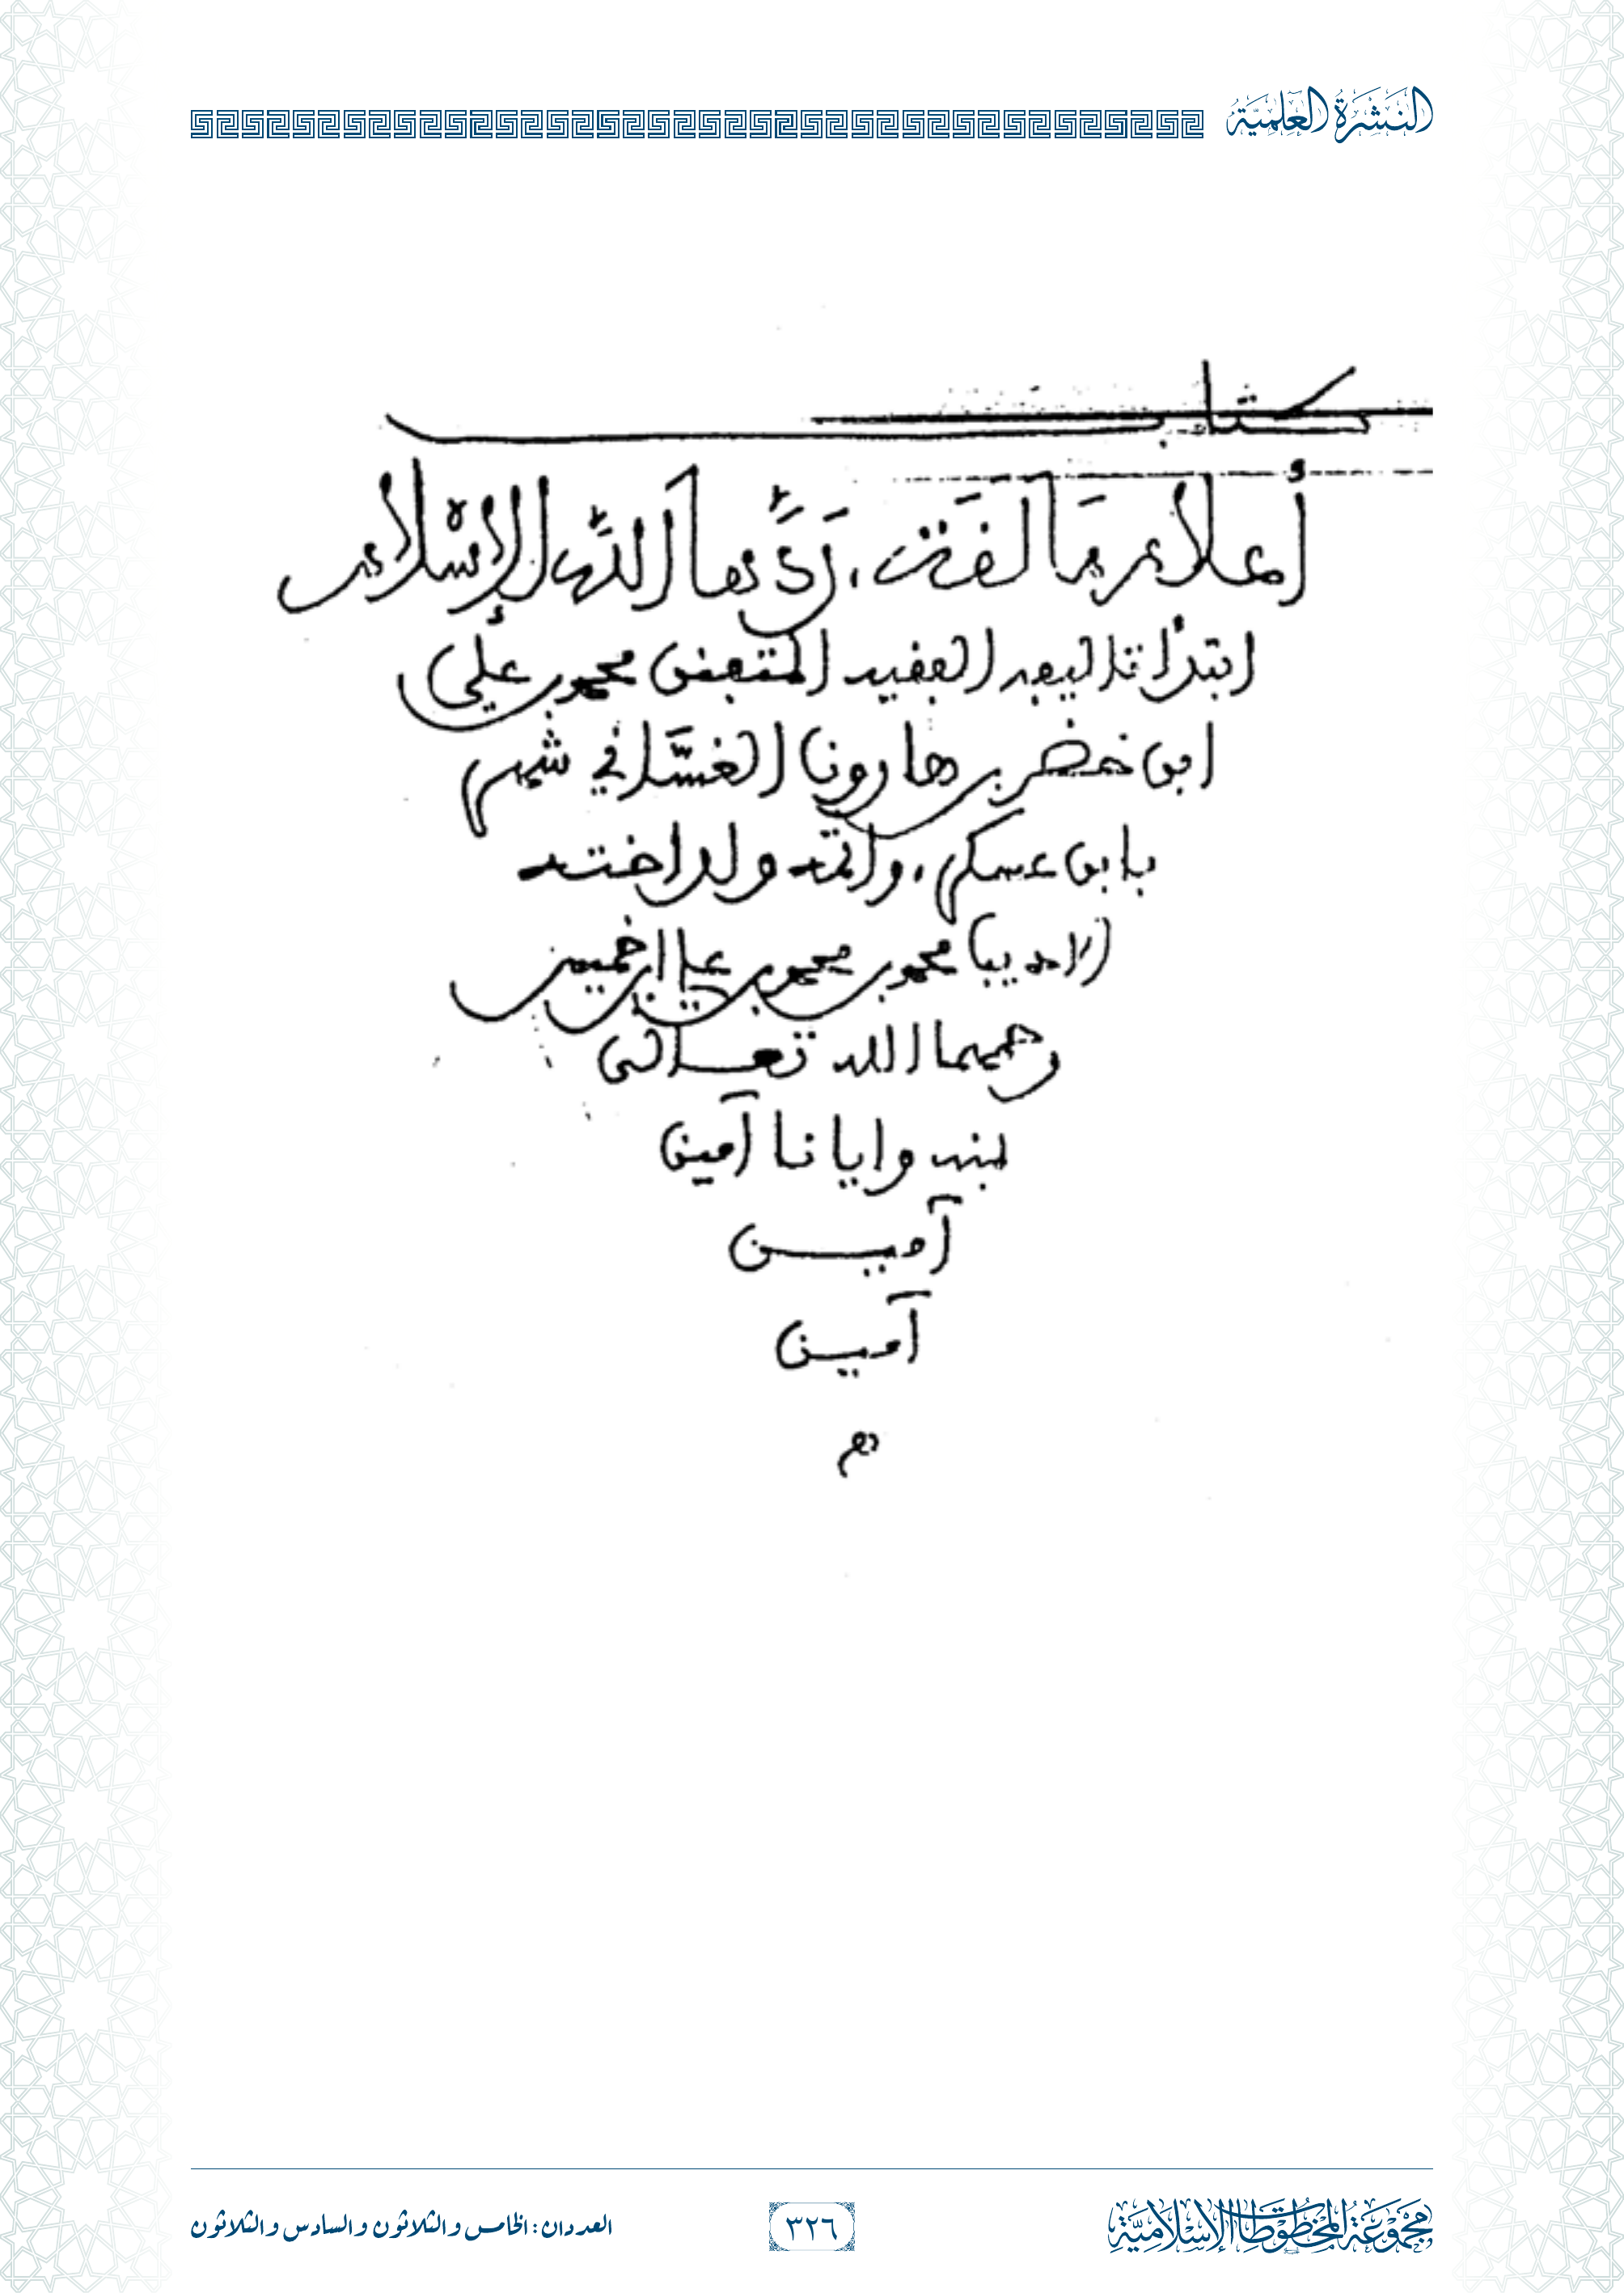 النشرة العلمية
كتاب
أعلام مالقة، ردّها الله للإسلام
ابتدأ تاليفه الفقيه المتفنن محمد بن علي
ابن خضر بن هارون الغسّاني شهر
بابن عسكر، واتمه ولد اخته
(الاديب) محمد بن محمد بن علي ابن خميس
رحمهما الله تعالى
بمنه وايانا آمين
آميـــن
آميـن
مجموعة المخطوطات الإسلامية
٣٢٦
العددان: الخامس والثلاثون والسادس والثلاثون